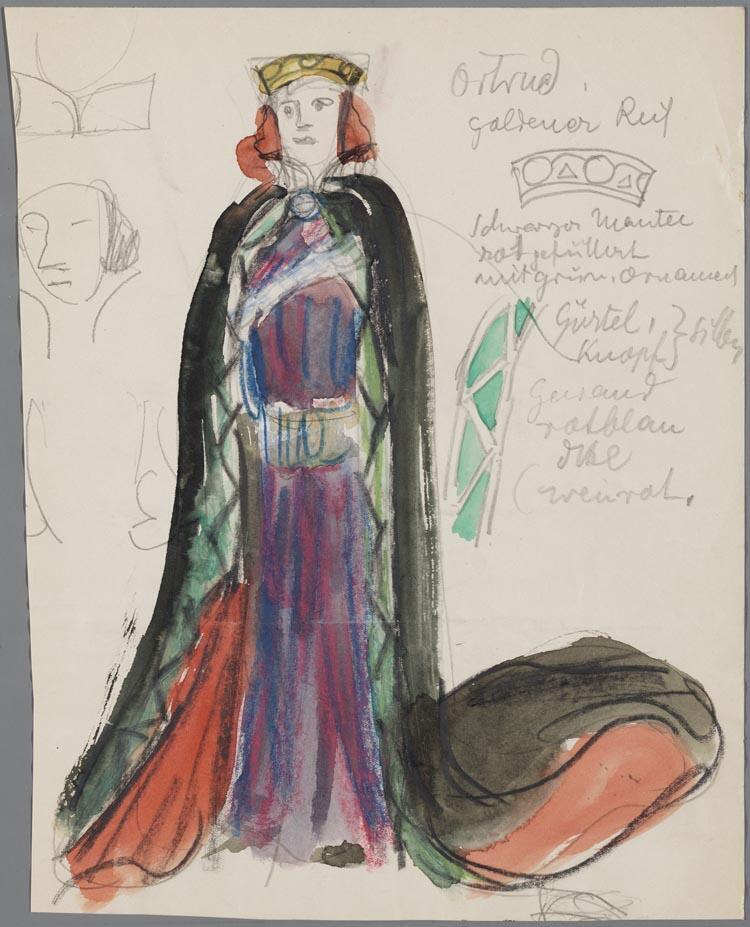 Ortrud,
goldener Reif
schwarzer Mantel
rot gefüttert
mit grün. Ornament
(Gürtel, } Silber
Knopf }
Gewand
rotblau
(weinrot.